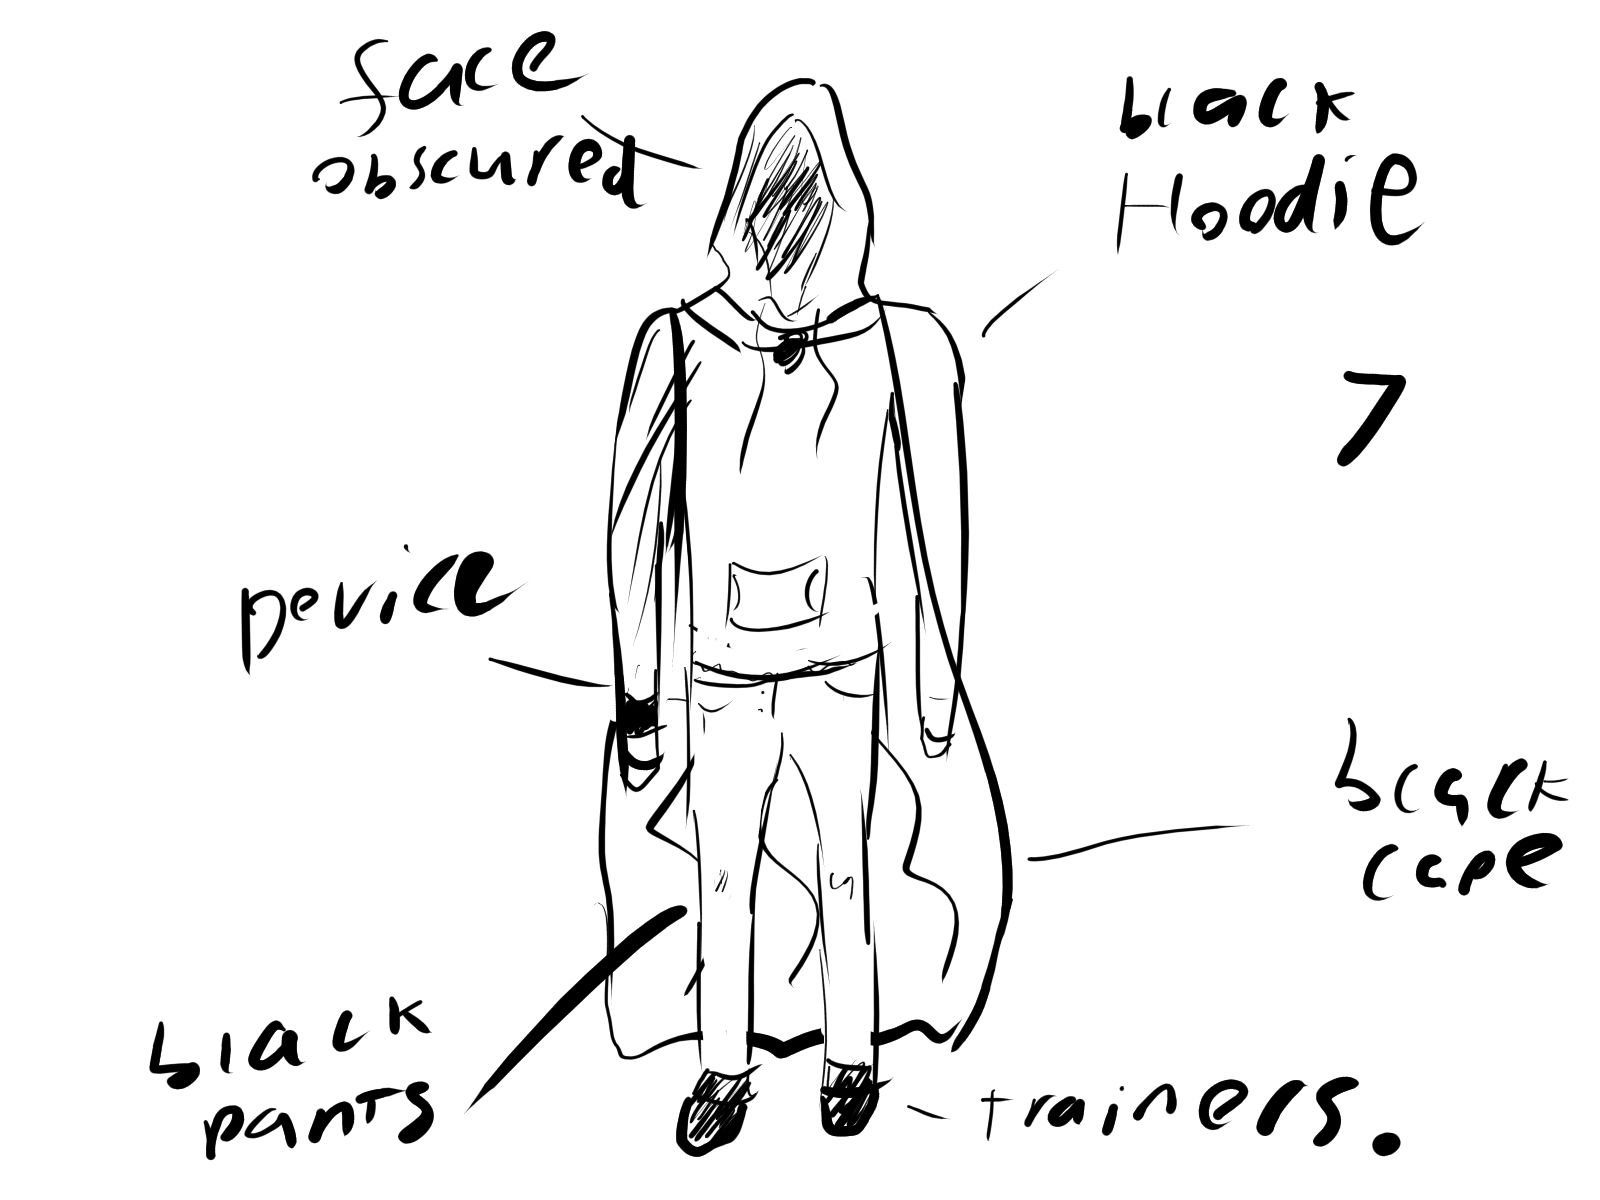 face
obscured
black
Hoodie
7
Device
black
cape
black
pants
trainers.